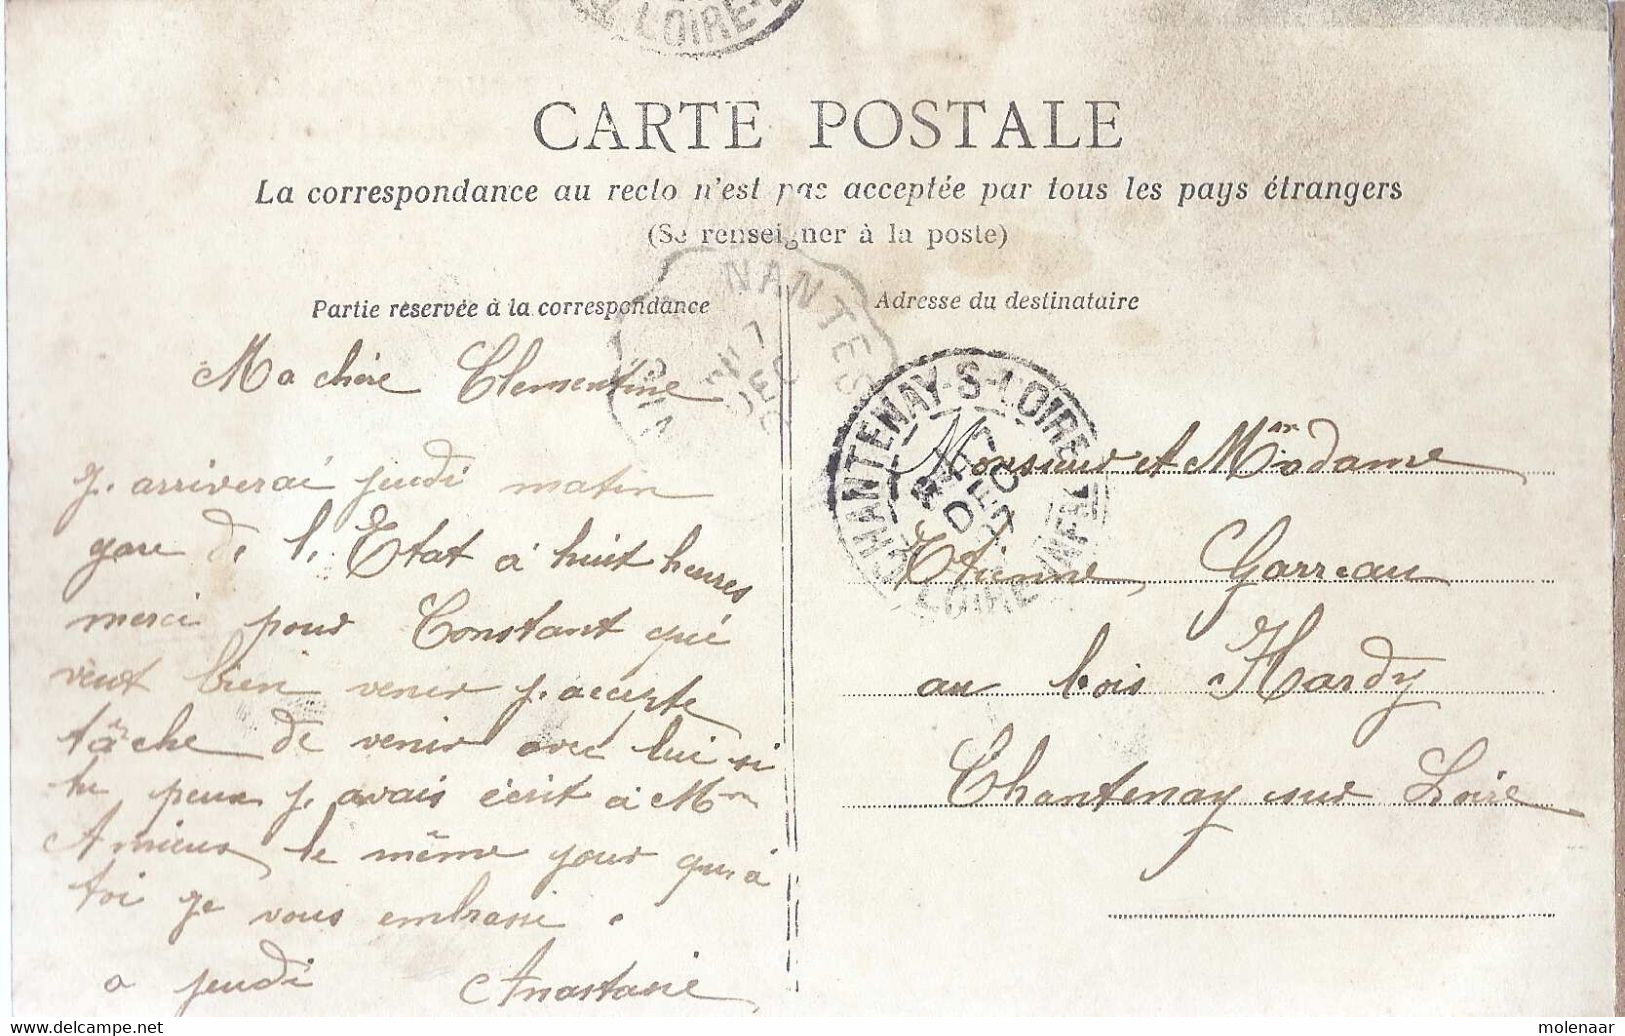 LOIRE
CARTE POSTALE
La correspondance au recto n'est pas acceptée par tous les pays étrangers
(Se renseigner à la poste)
NANTES
Partie réservée à la correspondance
Adresse du destinataire
Ma chère Clementine
j. arriverai jeudi matin
gare de l. Etat à huit heures
merci pour Constant qui
veut bien venir j. accepte
tâche de venir avec lui si
tu peux j. avais écrit à Mme
Amieux le même jour qu. à
toi je vous embrasse.
a jeudi Anastasie
CHANTENAY-S-LOIRE
7
DEC
07
LOIRE-INFRE
Monsieur et Madame
Etienne Garreau
au bois Hardy
Chantenay sur Loire
https://www.delcampe.net
molenaar